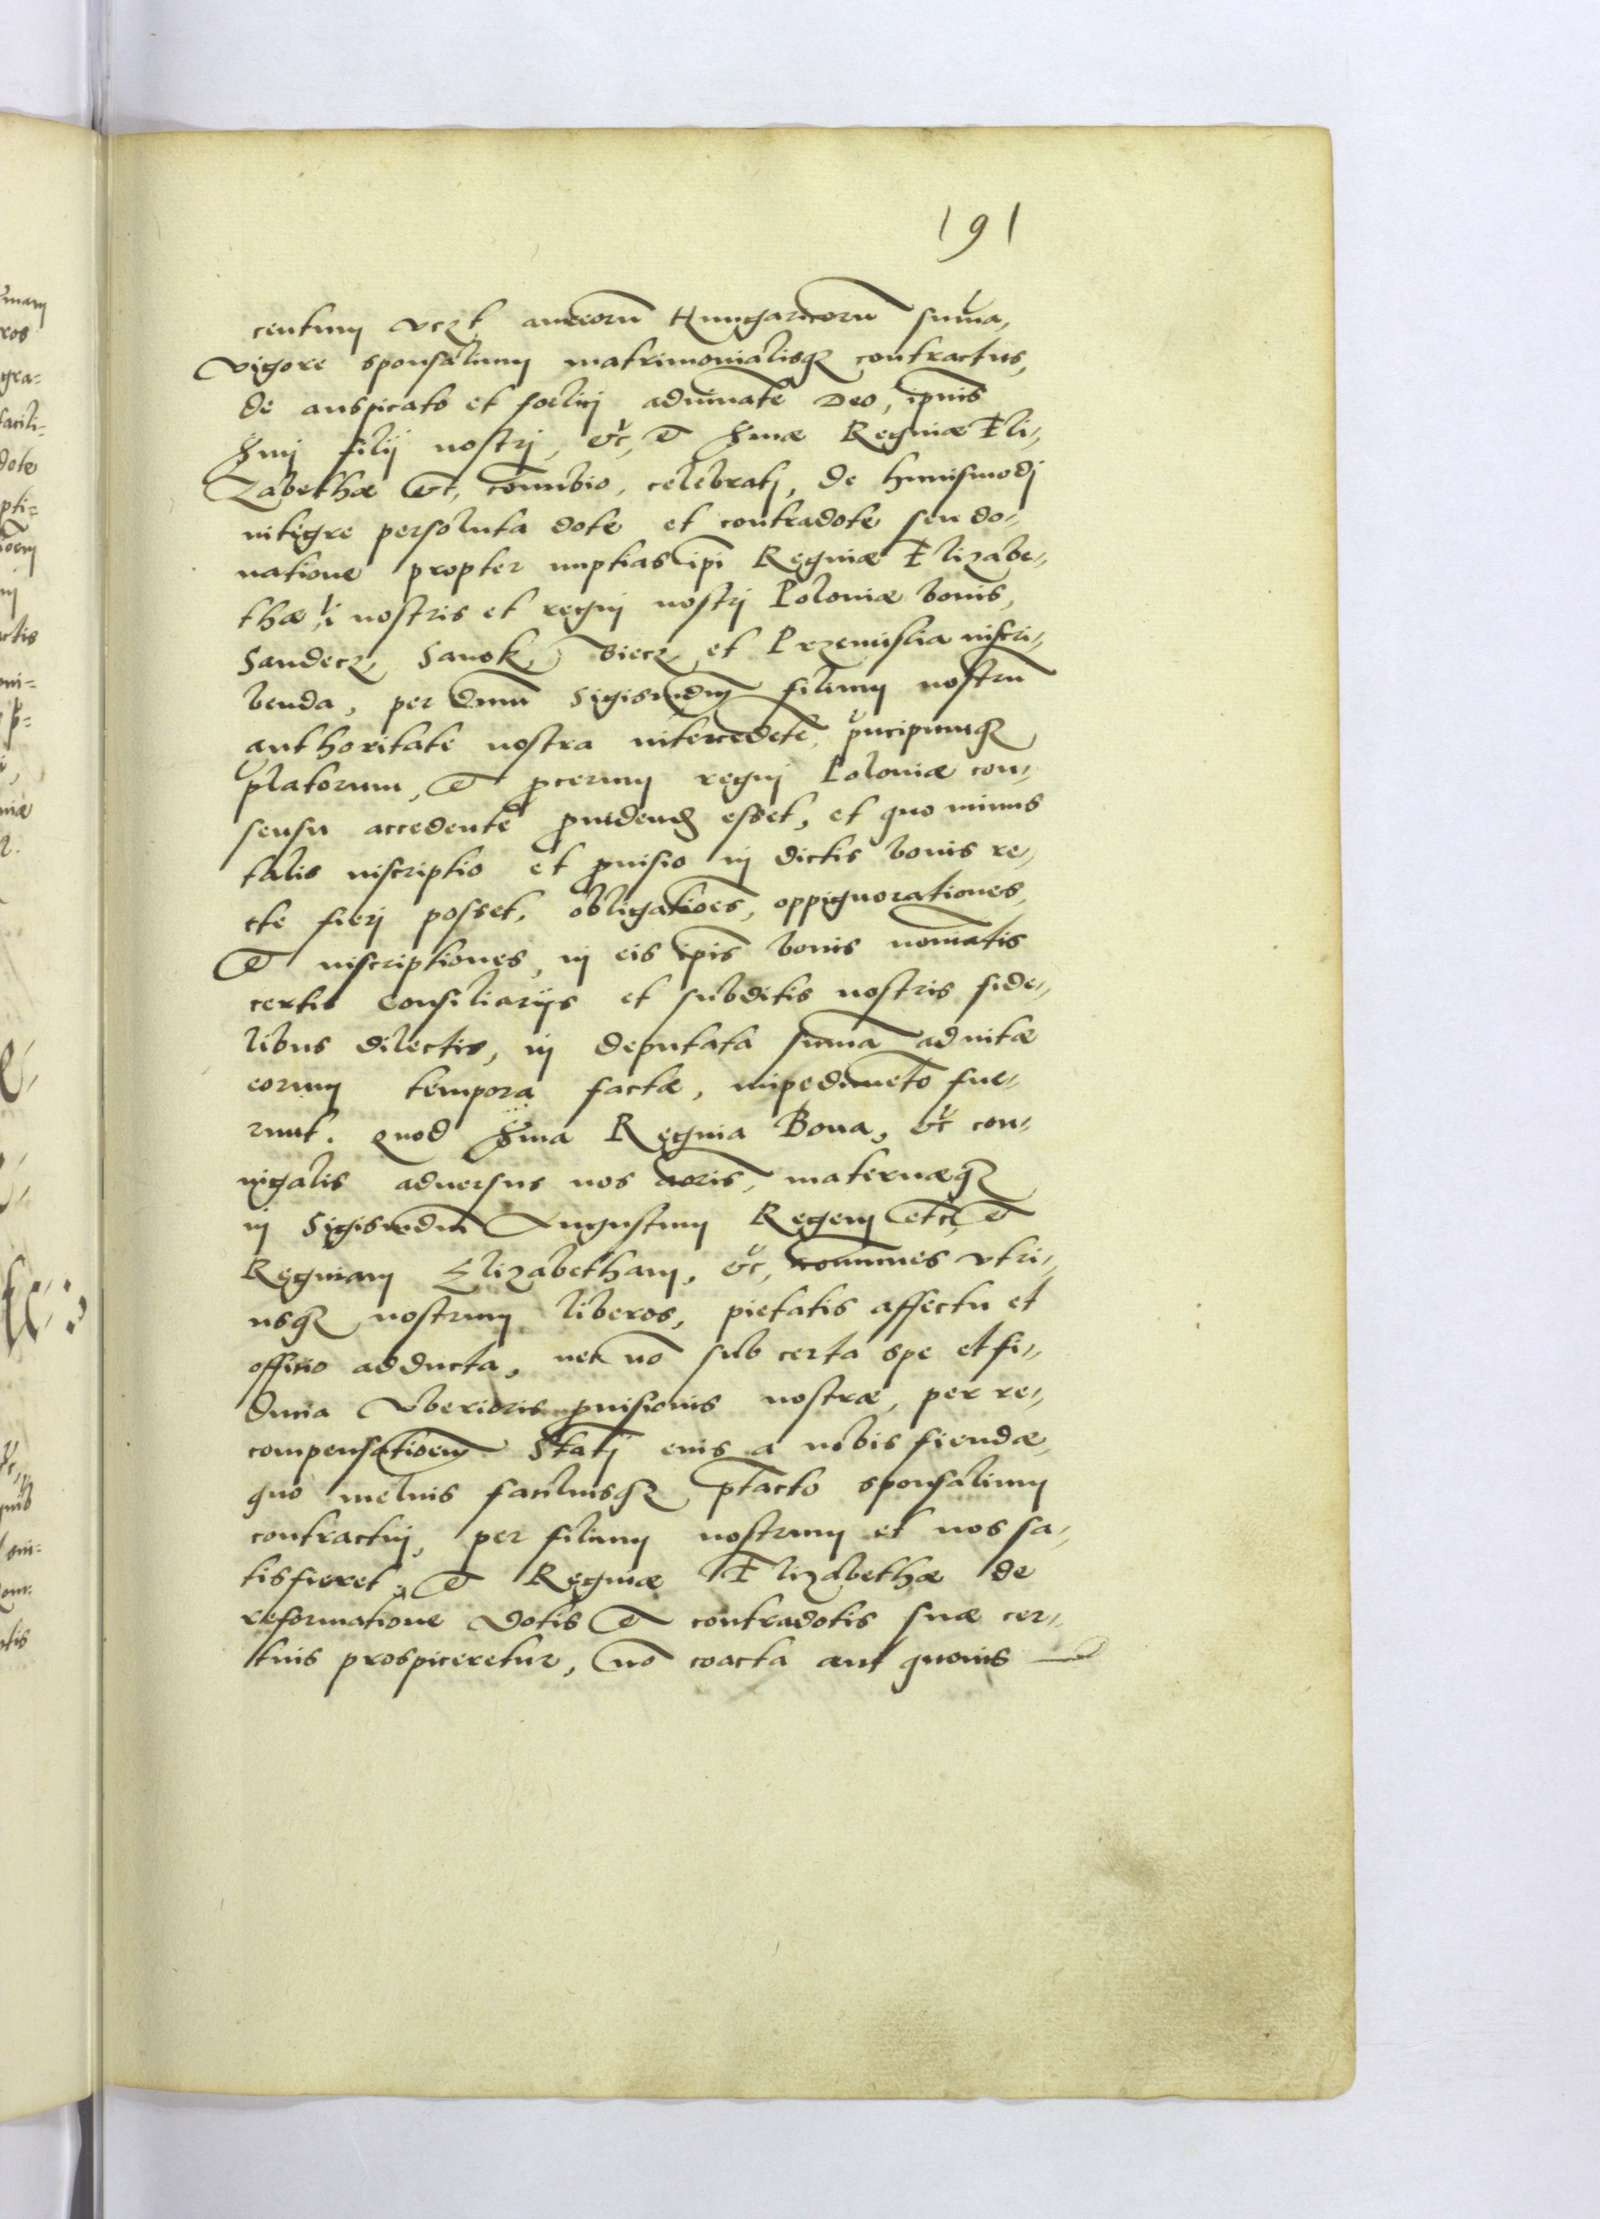 191
centum vczt aureorū Hungaricorū sum̄a,
vigore sponsalium matrimonialisq3 contractus,
de auspicato et foelici, aduūāte Deo, ip̄ius
Smi filij nostri, etc, et Smæ Reginæ Eli-
zabethæ etc, cōnubio, celebrati, de huiusmodi
integre persoluta dote et contradote seu do-
natione propter nuptias ip̄i Reginæ Elizabe-
thæ, ī nostris et regni nostri Poloniæ bonis,
Sandecz, Sanok, Biecz, et Przemislia inscri-
benda, per dnū Sigismūdum filium nostrū
authoritate nostra intercedēte, principumq3
platorum, et pcerum regni Poloniæ con-
sensu accedente prouidend esset, et quo minus
talis inscriptio et puisio in dictis bonis re-
cte fieri posset, obligatioēs, oppignorationes,
et inscriptiones, in eis ip̄is bonis nomiātis
certis Consiliarijs et subditis nostris fide-
libus dilectis, in deputata sum̄a ad uitæ
eorum tempora factæ, impedimēto fue-
runt. Quod Sma Regina Bona, etc con-
iugalis aduersus nos am̄oris, maternæq3
in Sigismūdū Augustum Regem etc, et
Reginam Elizabetham, etc, com̄unes vtri-
usq3 nostrum liberos, pietatis affectu et
officio adducta, nec nō sub certa spe et fi-
ducia vberioris puisionis nostræ, per re-
compensatioēm Stati eius a nobis fiendæ,
quo melius faciliusq3 p̄tacto sponsalium
contractui, per filium nostrum et nos sa-
tisfieret, et Reginæ Elizabethæ de
reformatione dotis et contradotis suæ cer-
tius prospiceretur, nō coacta aut quouis